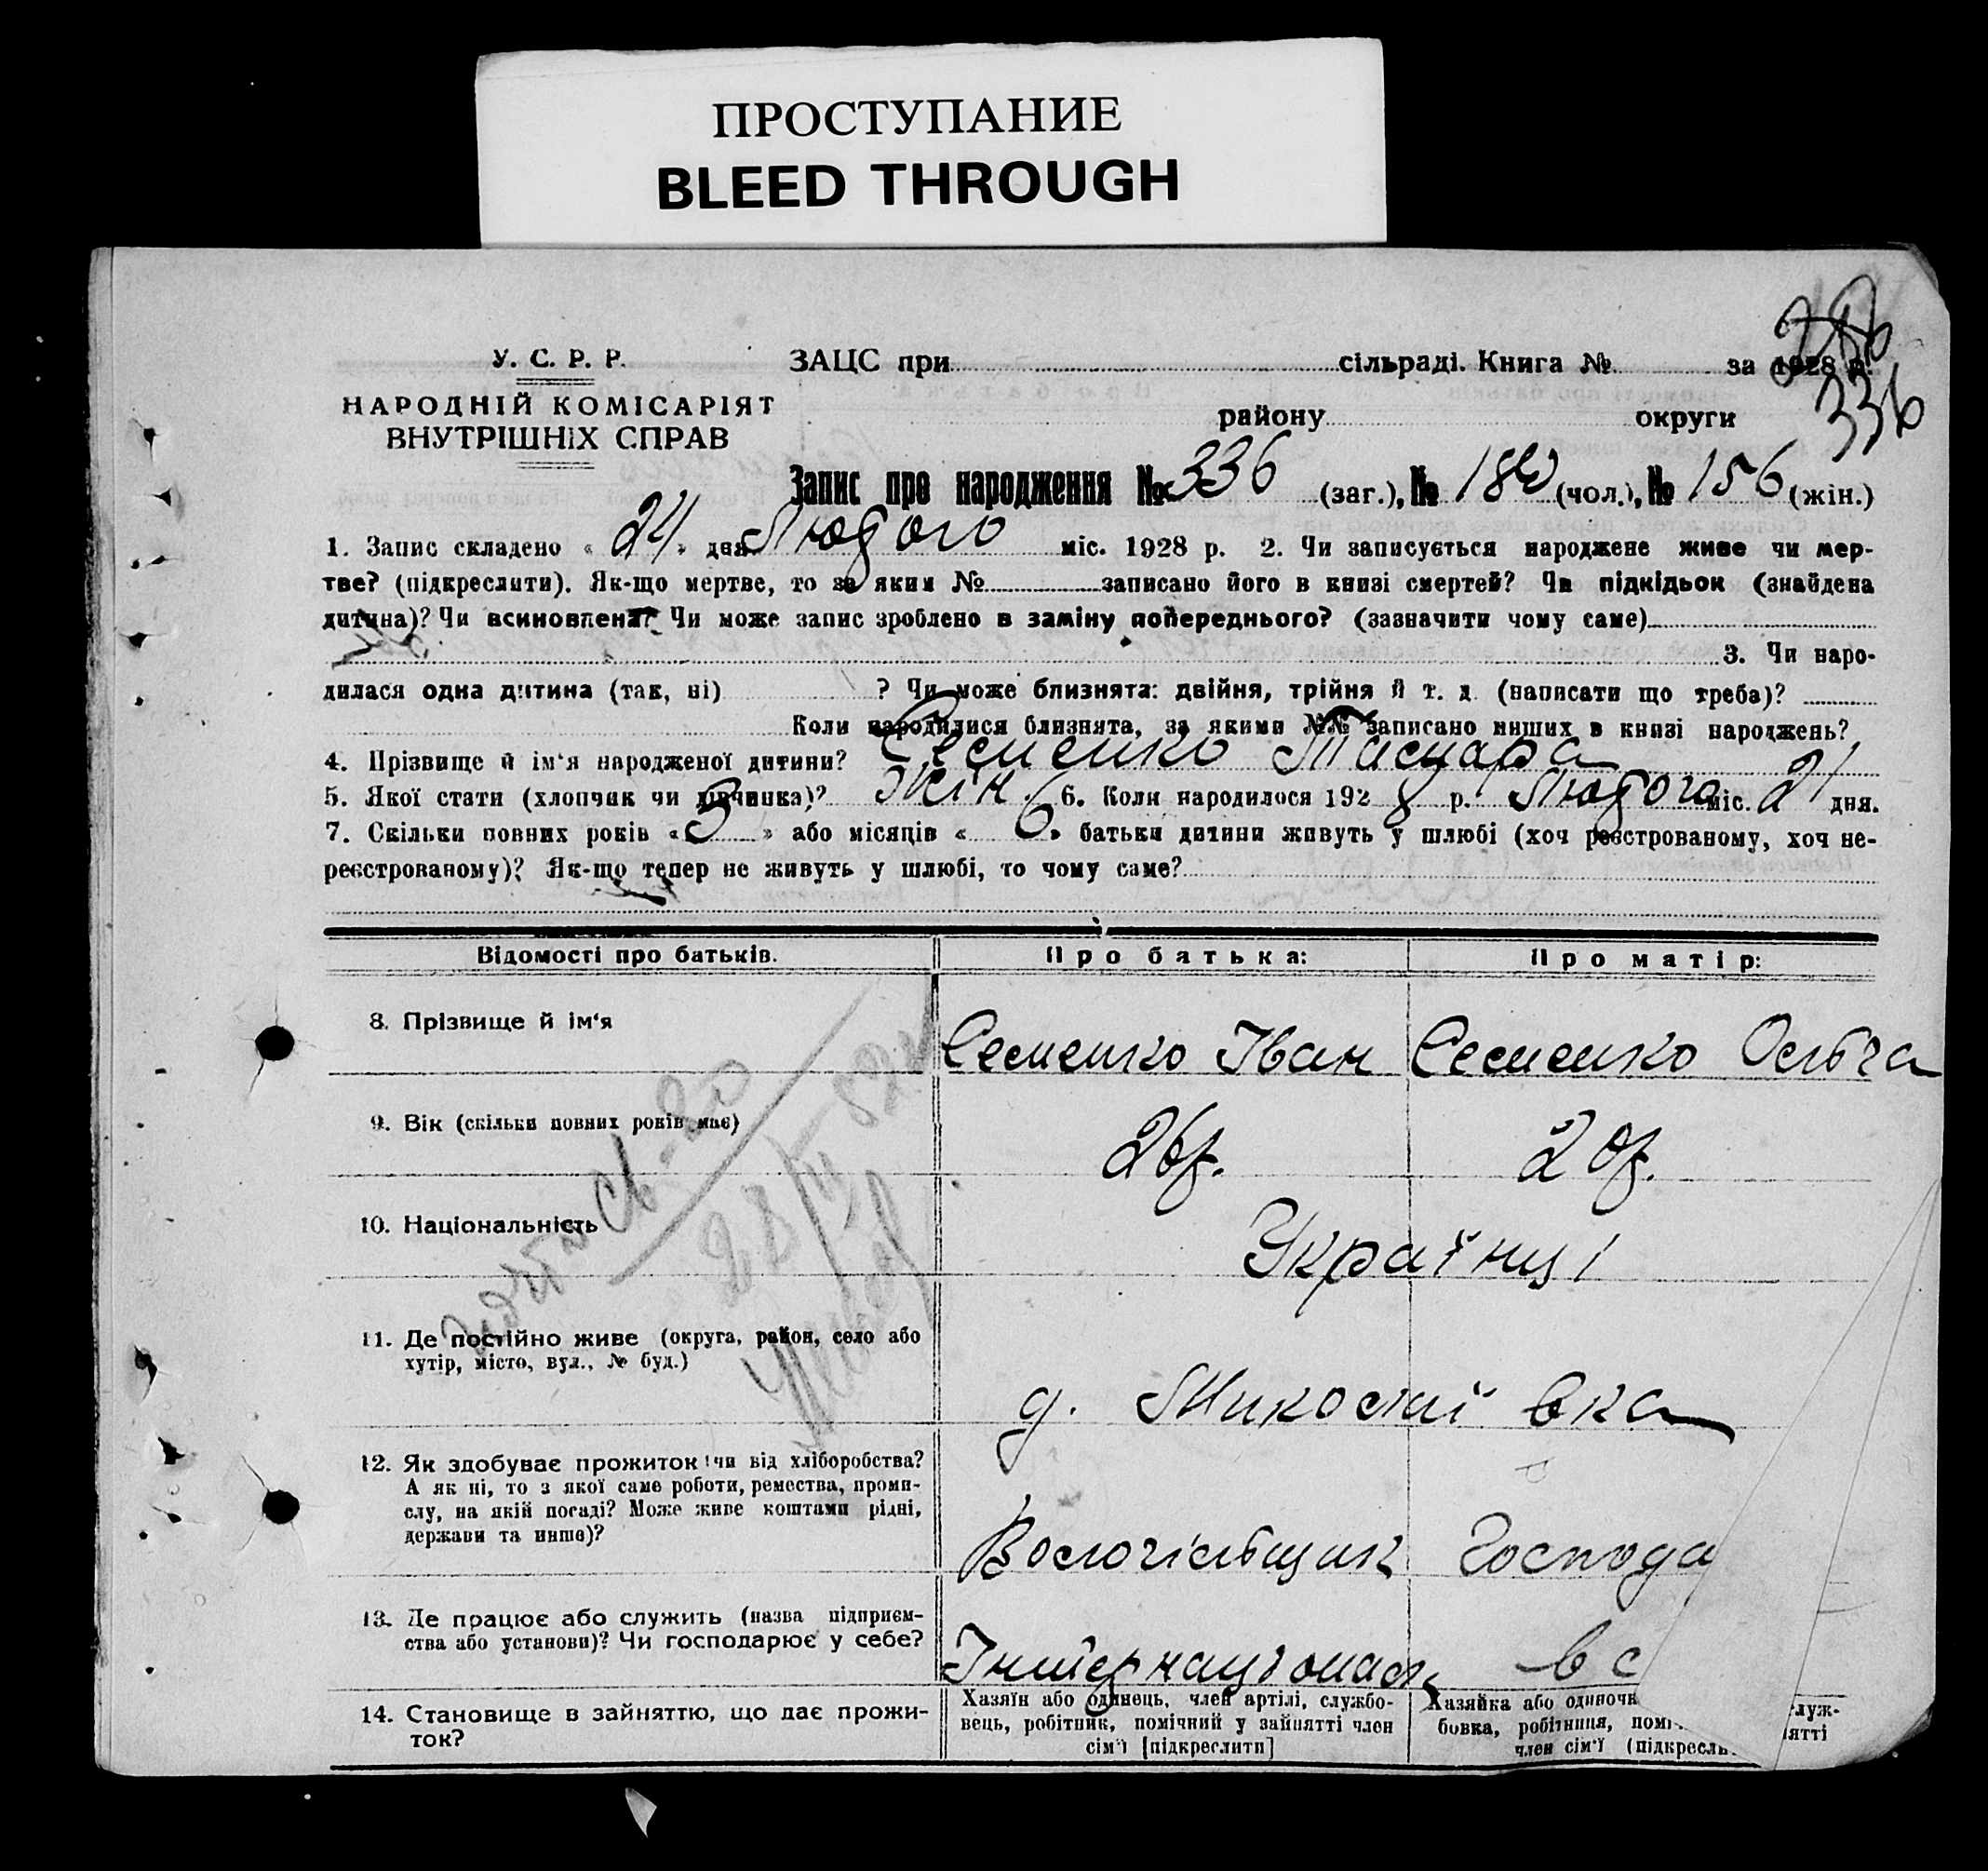 ПРОСТУПАНИЕ
BLEED THROUGH
У. С. Р. Р.
НАРОДНІЙ КОМІСАРІЯТ
ВНУТРІШНІХ СПРАВ
ЗАЦС при сільраді. Книга № за 1928 р.
336
району округи
Запис про народження № 336 (заг.), № 180 (чол.), № 156 (жін.)
1. Запис складено « 24 » дня Лютого міс. 1928 р. 2. Чи записується народжене живе чи мер-
тве? (підкреслити). Як-що мертве, то за яким № записано його в книзі смертей? Чи підкідьок (знайдена
дитина)? Чи всиновлена? Чи може запис зроблено в заміну попереднього? (зазначити чому саме)
3. Чи наро-
дилася одна дитина (так, ні) ? Чи може близнята: двійня, трійня й т. д. (написати що треба)?
Коли народилися близнята, за якими №№ записано инших в книзі народжень?
4. Прізвище й ім'я народженої дитини? Семенко Тамара
5. Якої стати (хлопчик чи дівчинка)? Жін. 6. Коли народилося 1928 р. Лютого міс. 21 дня.
7. Скільки повних років « 3 » або місяців « 6 » батьки дитини живуть у шлюбі (хоч реєстрованому, хоч не-
реєстрованому)? Як-що тепер не живуть у шлюбі, то чому саме?
Відомості про батьків. Про батька: Про матір:
8. Прізвище й ім'я Семенко Іван Семенко Ольга
9. Вік (скільки повних років має) 26 р. 20 р.
10. Національність Українці
11. Де постійно живе (округа, район, село або
хутір, місто, вул., № буд.)
д. Миколаївка
12. Як здобуває прожиток: чи від хліборобства?
А як ні, то з якої саме роботи, ремества, проми-
слу, на якій посаді? Може живе коштами рідні,
держави та инше)?
Господа
13. Де працює або служить (назва підприєм-
ства або установи)? Чи господарює у себе?
Інтернаціонал в с
14. Становище в зайняттю, що дає прожи-
ток?
Хазяїн або одинець, член артілі, службо-
вець, робітник, помічний у зайнятті член
сім'ї [підкреслити]
Хазяйка або одиночк служ-
бовка, робітниця, помі ятті
член сім'ї (підкресли